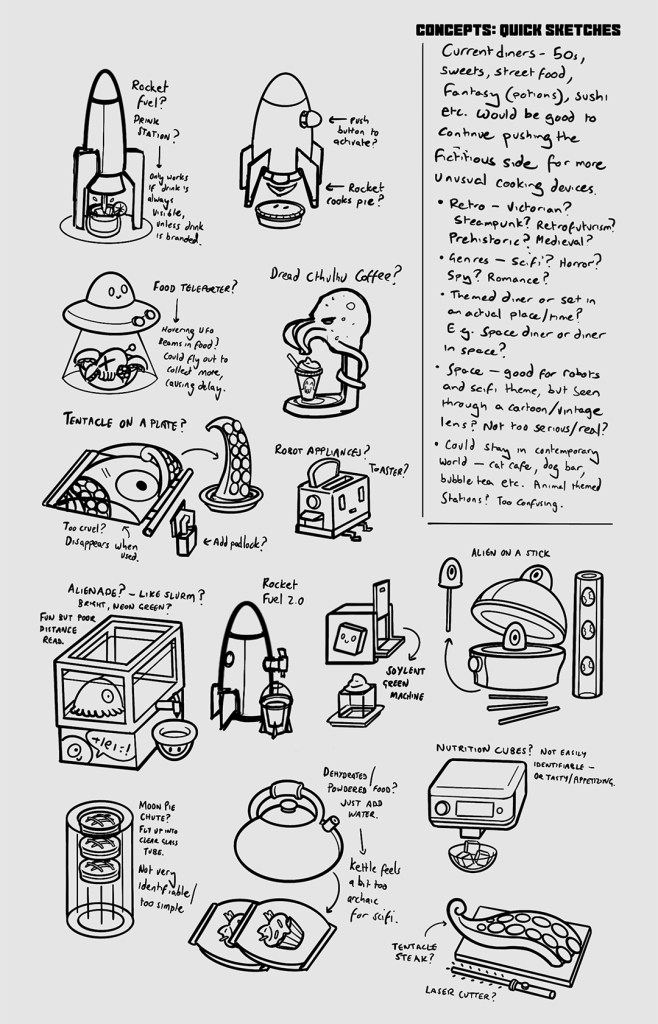 CONCEPTS: QUICK SKETCHES
Current diners - 50s,
sweets, street food,
Fantasy (potions), sushi
etc. Would be good to
continue pushing the
fictitious side for more
unusual cooking devices.
• Retro - Victorian?
Steampunk? Retrofuturism?
Prehistoric? Medieval?
• Genres - Scifi? Horror?
Spy? Romance?
• Themed diner or set in
an actual place/time?
E.g. Space diner or diner
in space?
• Space - good for robots
and scifi theme, but seen
through a cartoon/vintage
lens? Not too serious/real?
• Could stay in contemporary
world - cat cafe, dog bar,
bubble tea etc. Animal themed
stations? Too confusing.
Rocket
Fuel?
DRINK
STATION?
Only works
if drink is
always
visible,
unless drink
is branded.
← push
button to
activate?
← Rocket
cooks pie?
FOOD TELEPORTER?
Hovering UFO
beams in food?
Could fly out to
collect more,
causing delay.
Dread Cthulhu Coffee?
TENTACLE ON A PLATE?
Too cruel?
Disappears when
used.
← Add padlock?
ROBOT APPLIANCES?
TOASTER?
ALIENADE? - LIKE SLURM?
BRIGHT, NEON GREEN?
FUN BUT POOR
DISTANCE
READ.
Rocket
Fuel 2.0
SOYLENT
GREEN
MACHINE
ALIEN ON A STICK
MOON PIE
CHUTE?
FLY UP INTO
CLEAR GLASS
TUBE.
Not very
identifiable/
too simple
DEHYDRATED/
POWDERED FOOD?
JUST ADD
WATER.
Kettle feels
a bit too
archaic
for scifi.
NUTRITION CUBES? NOT EASILY
IDENTIFIABLE -
OR TASTY/APPETIZING.
TENTACLE
STEAK?
LASER CUTTER?